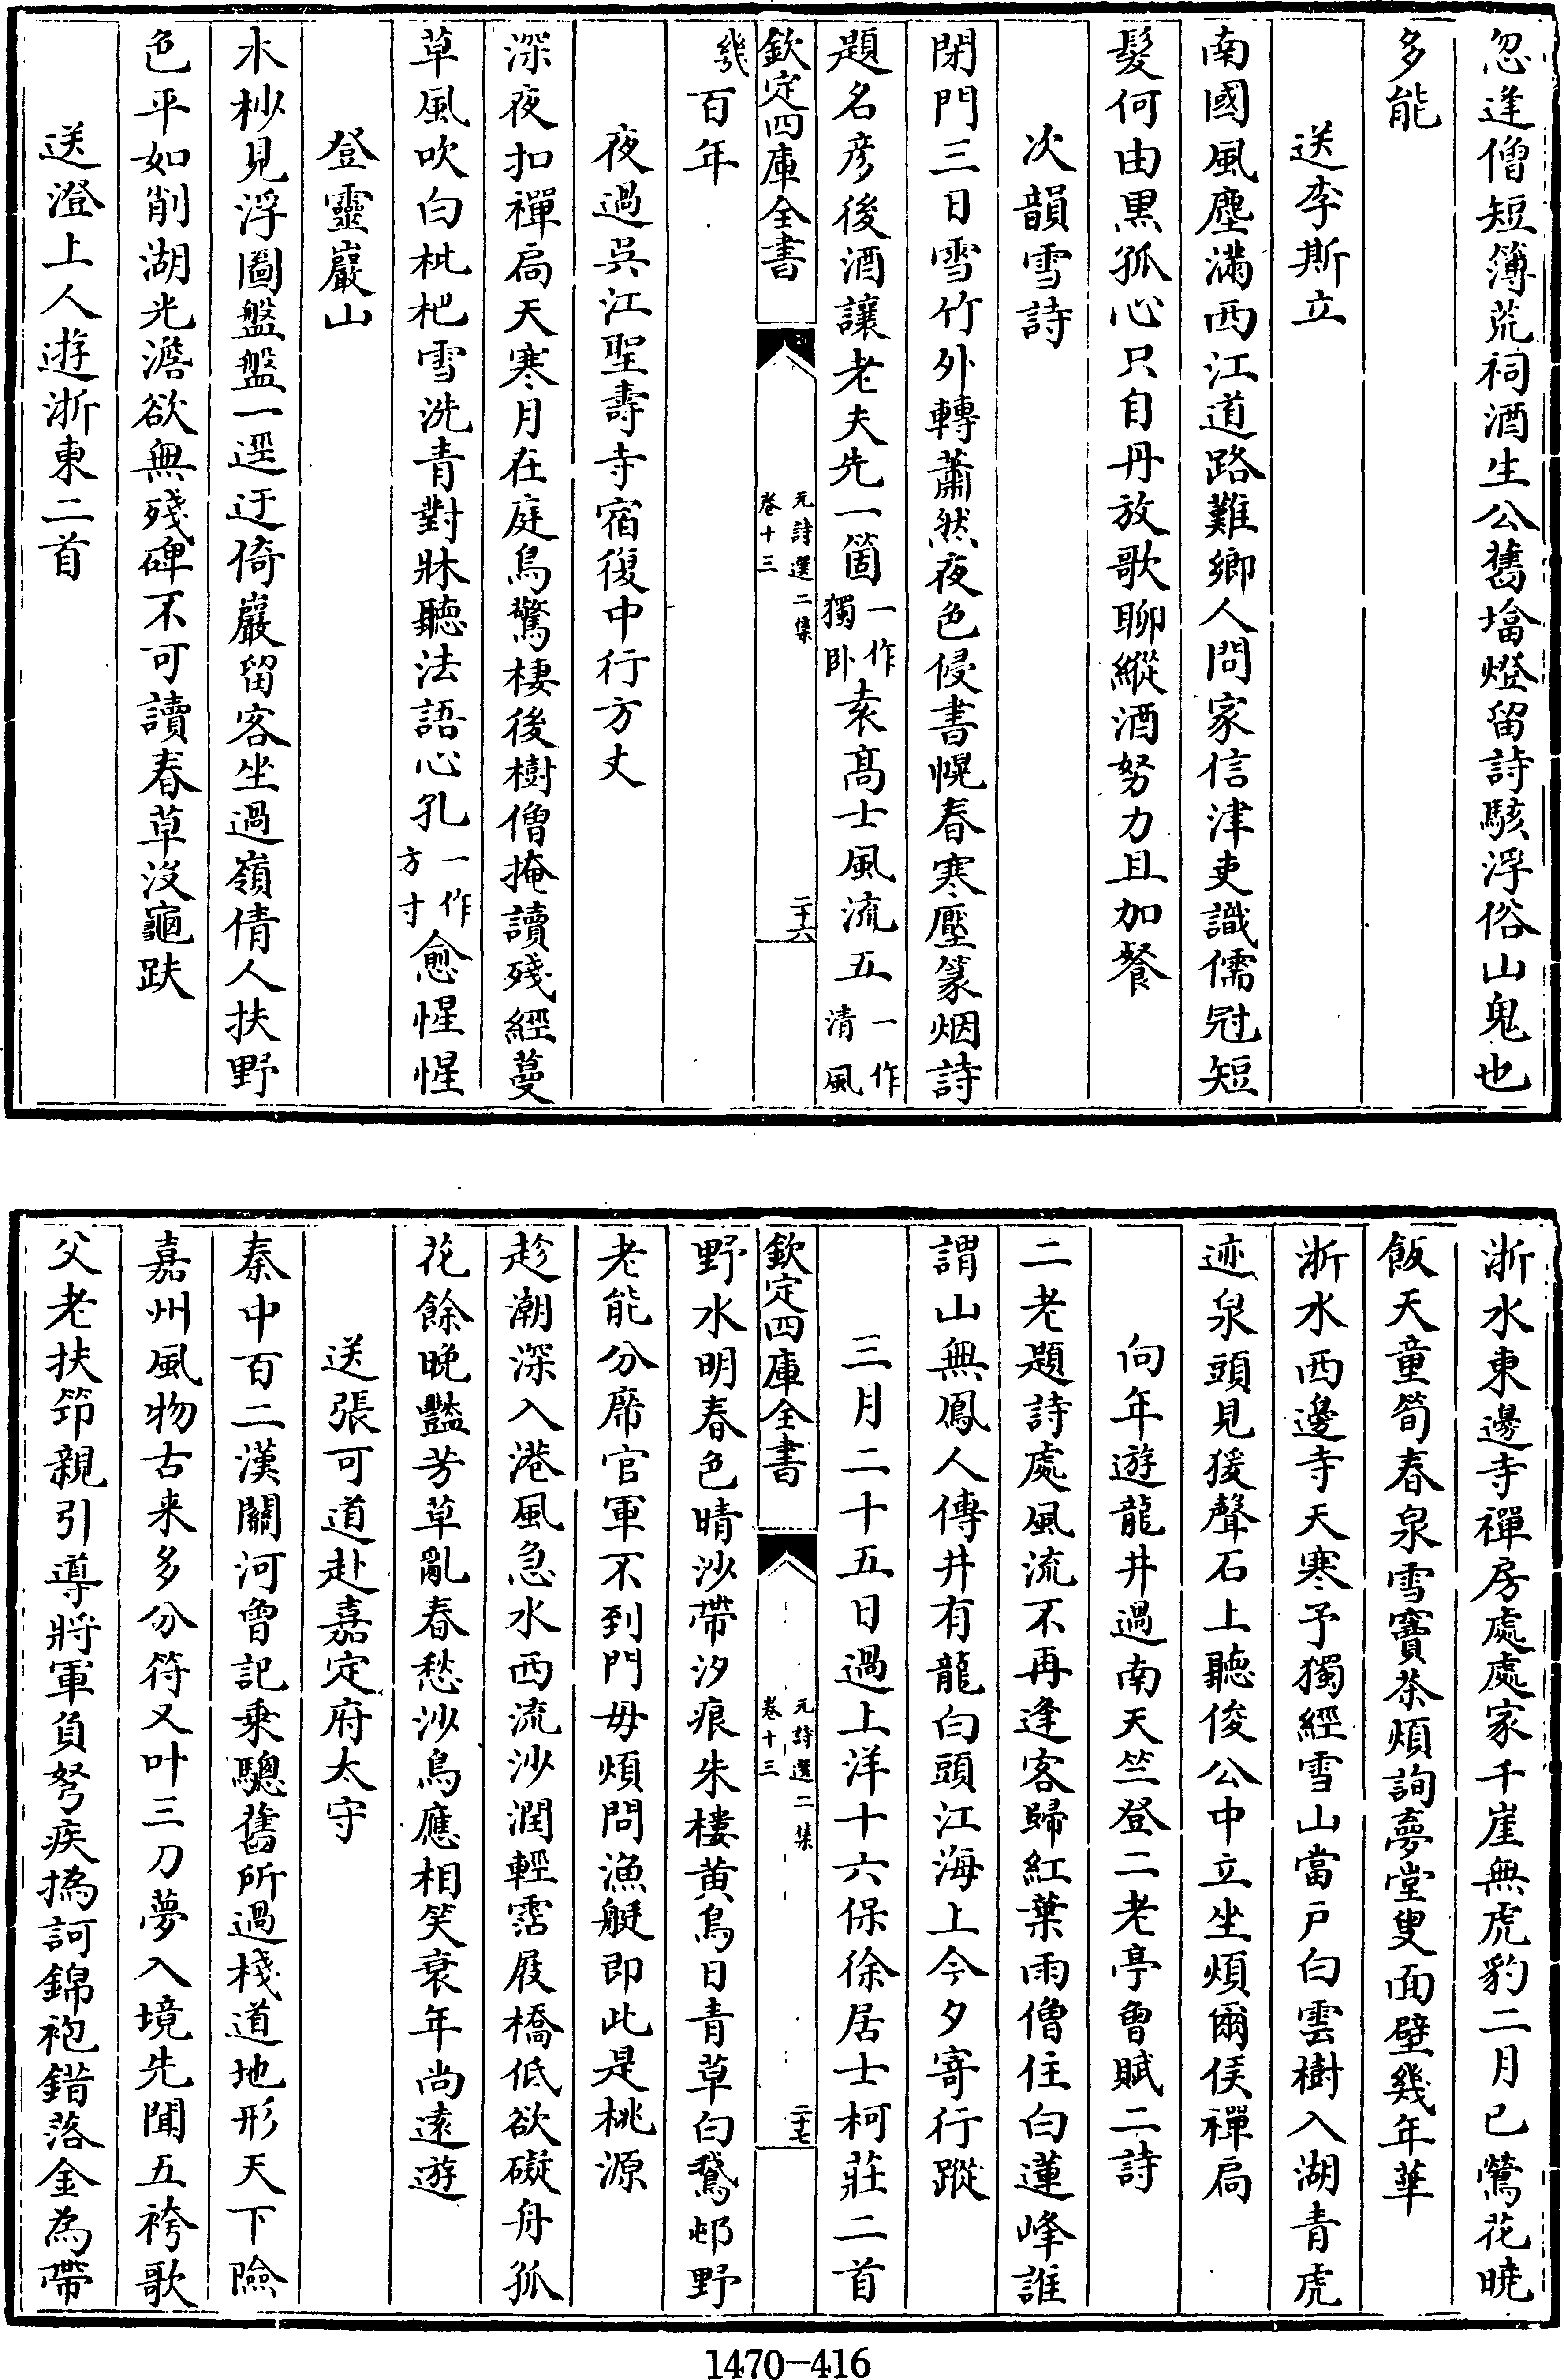 忽逢僧短簿荒祠酒生公舊墖燈留詩駭浮俗山鬼也
多能
送李斯立
南國風塵滿西江道路難鄉人問家信津吏識儒冠短
髮何由黒孤心只自丹放歌聊縱酒努力且加餐
次韻雪詩
閉門三日雪竹外轉蕭然夜色侵書幌春寒壓篆烟詩
題名彥後酒讓老夫先一箇一作獨卧袁髙士風流五一作清風
欽定四庫全書
元詩選二集
卷十三
二十六
幾百年
夜過吳江聖壽寺宿復中行方丈
深夜扣禪扃天寒月在庭鳥驚棲後樹僧掩讀殘經蔓
草風吹白枇杷雪洗青對牀聽法語心孔一作方寸愈惺惺
登靈巖山
木杪見浮圖盤盤一逕迂倚巖留客坐過嶺倩人扶野
色平如削湖光澹欲無殘碑不可讀春草沒龜趺
送澄上人遊浙東二首
浙水東邊寺禪房處處家千崖無虎豹二月已鶯花曉
飯天童筍春泉雪竇茶煩詢夢堂叟面壁幾年華
浙水西邊寺天寒予獨經雪山當戶白雲樹入湖青虎
迹泉頭見猨聲石上聽俊公中立坐煩爾俟禪扃
向年遊龍井過南天竺登二老亭曾賦二詩
二老題詩處風流不再逢客歸紅葉雨僧住白蓮峰誰
謂山無鳳人傳井有龍白頭江海上今夕寄行蹤
三月二十五日過上洋十六保徐居士柯莊二首
欽定四庫全書
元詩選二集
卷十三
二十七
野水明春色晴沙帶汐痕朱樓黄鳥日青草白鵞邨野
老能分席官軍不到門毋煩問漁艇即此是桃源
趁潮深入港風急水西流沙潤輕霑屐橋低欲礙舟孤
花餘晚豔芳草亂春愁沙鳥應相笑衰年尚遠遊
送張可道赴嘉定府太守
秦中百二漢關河曾記乗驄舊所過棧道地形天下險
嘉州風物古来多分符又叶三刀夢入境先聞五袴歌
父老扶笻親引導將軍負弩疾撝訶錦袍錯落金為帶
1470-416